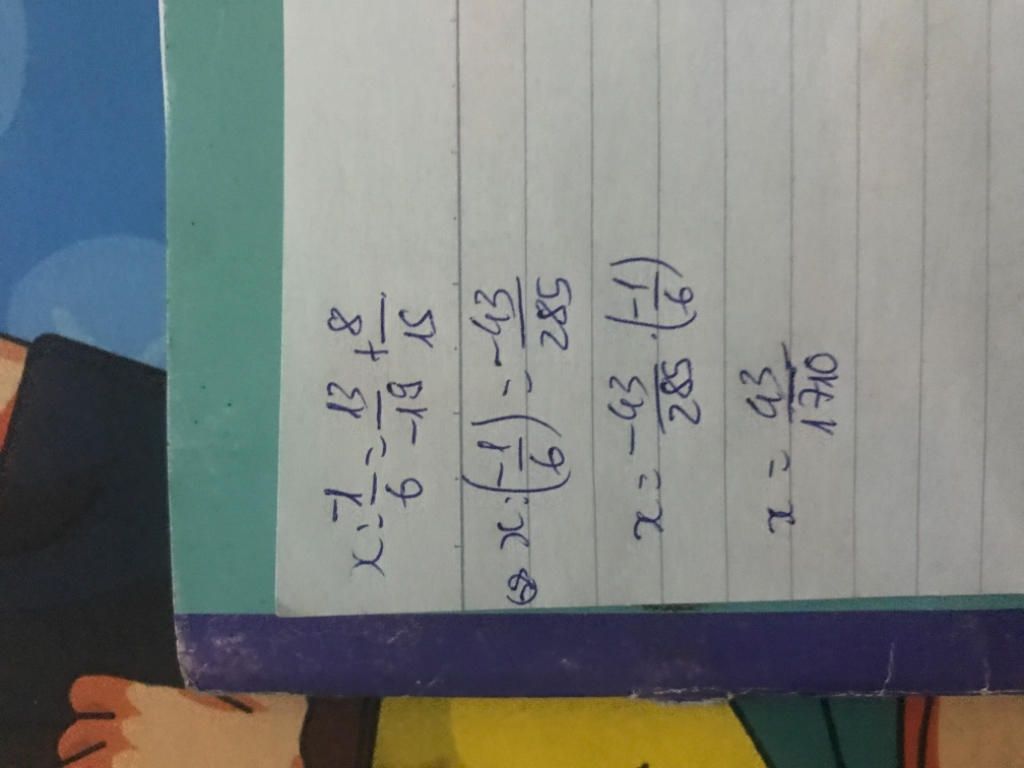 x : -1/6 = 13/-19 + 8/15
⇔ x : (-1/6) = -43/285
x = -43/285 . (-1/6)
x = 43/1710